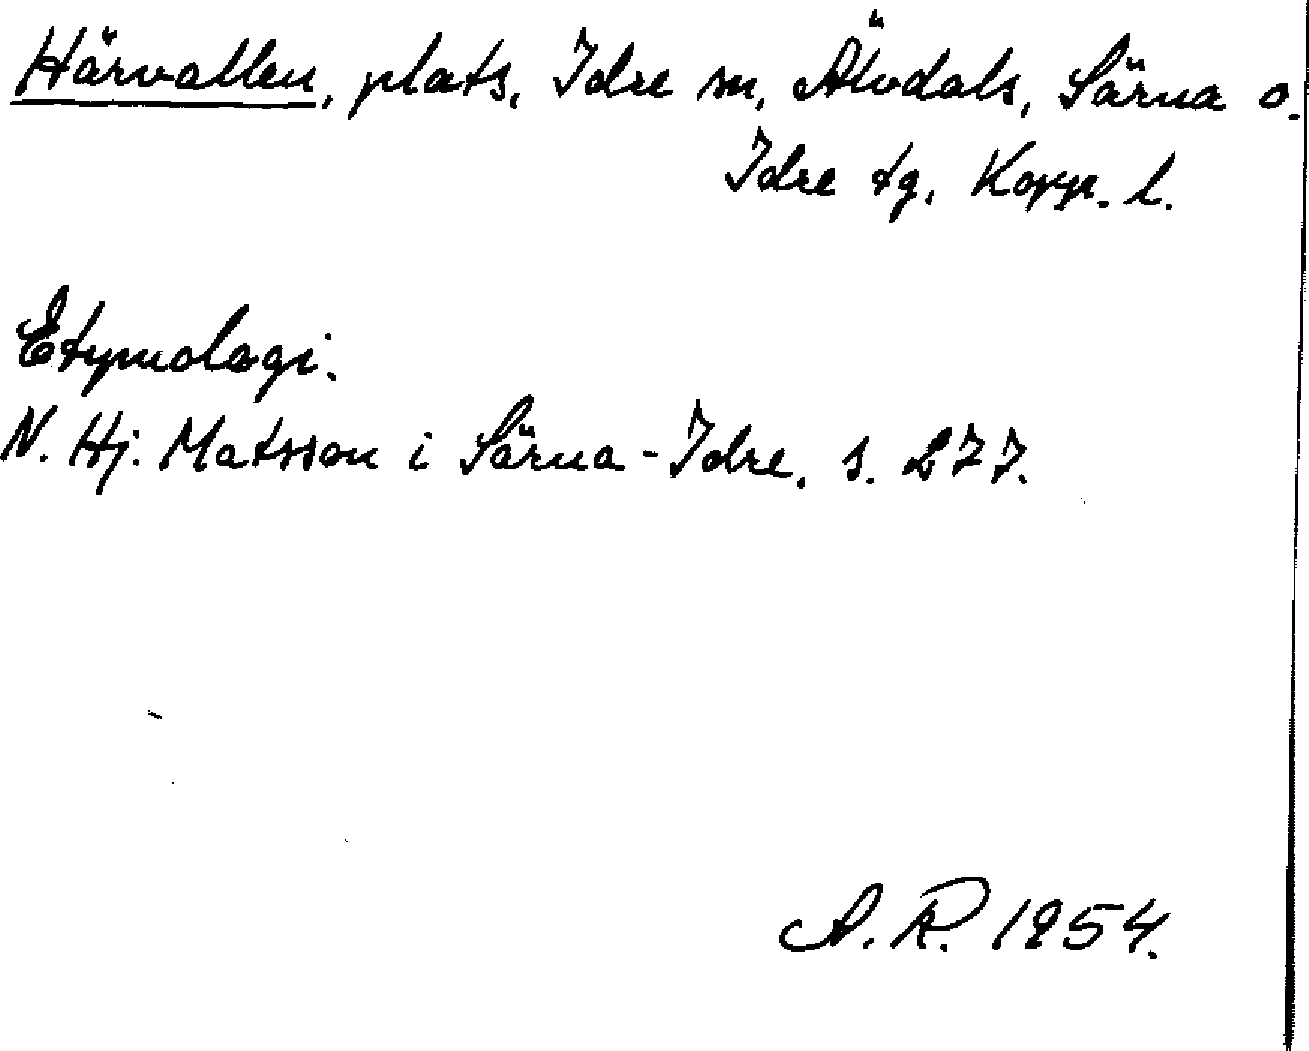 Härvallen, plats, Idre sn, Älvdals, Särna o.
Idre tg, Kopp. l.
Etymologi.
N. Hj. Matsson i Särna-Idre, s. 277.
A. R. 1954.